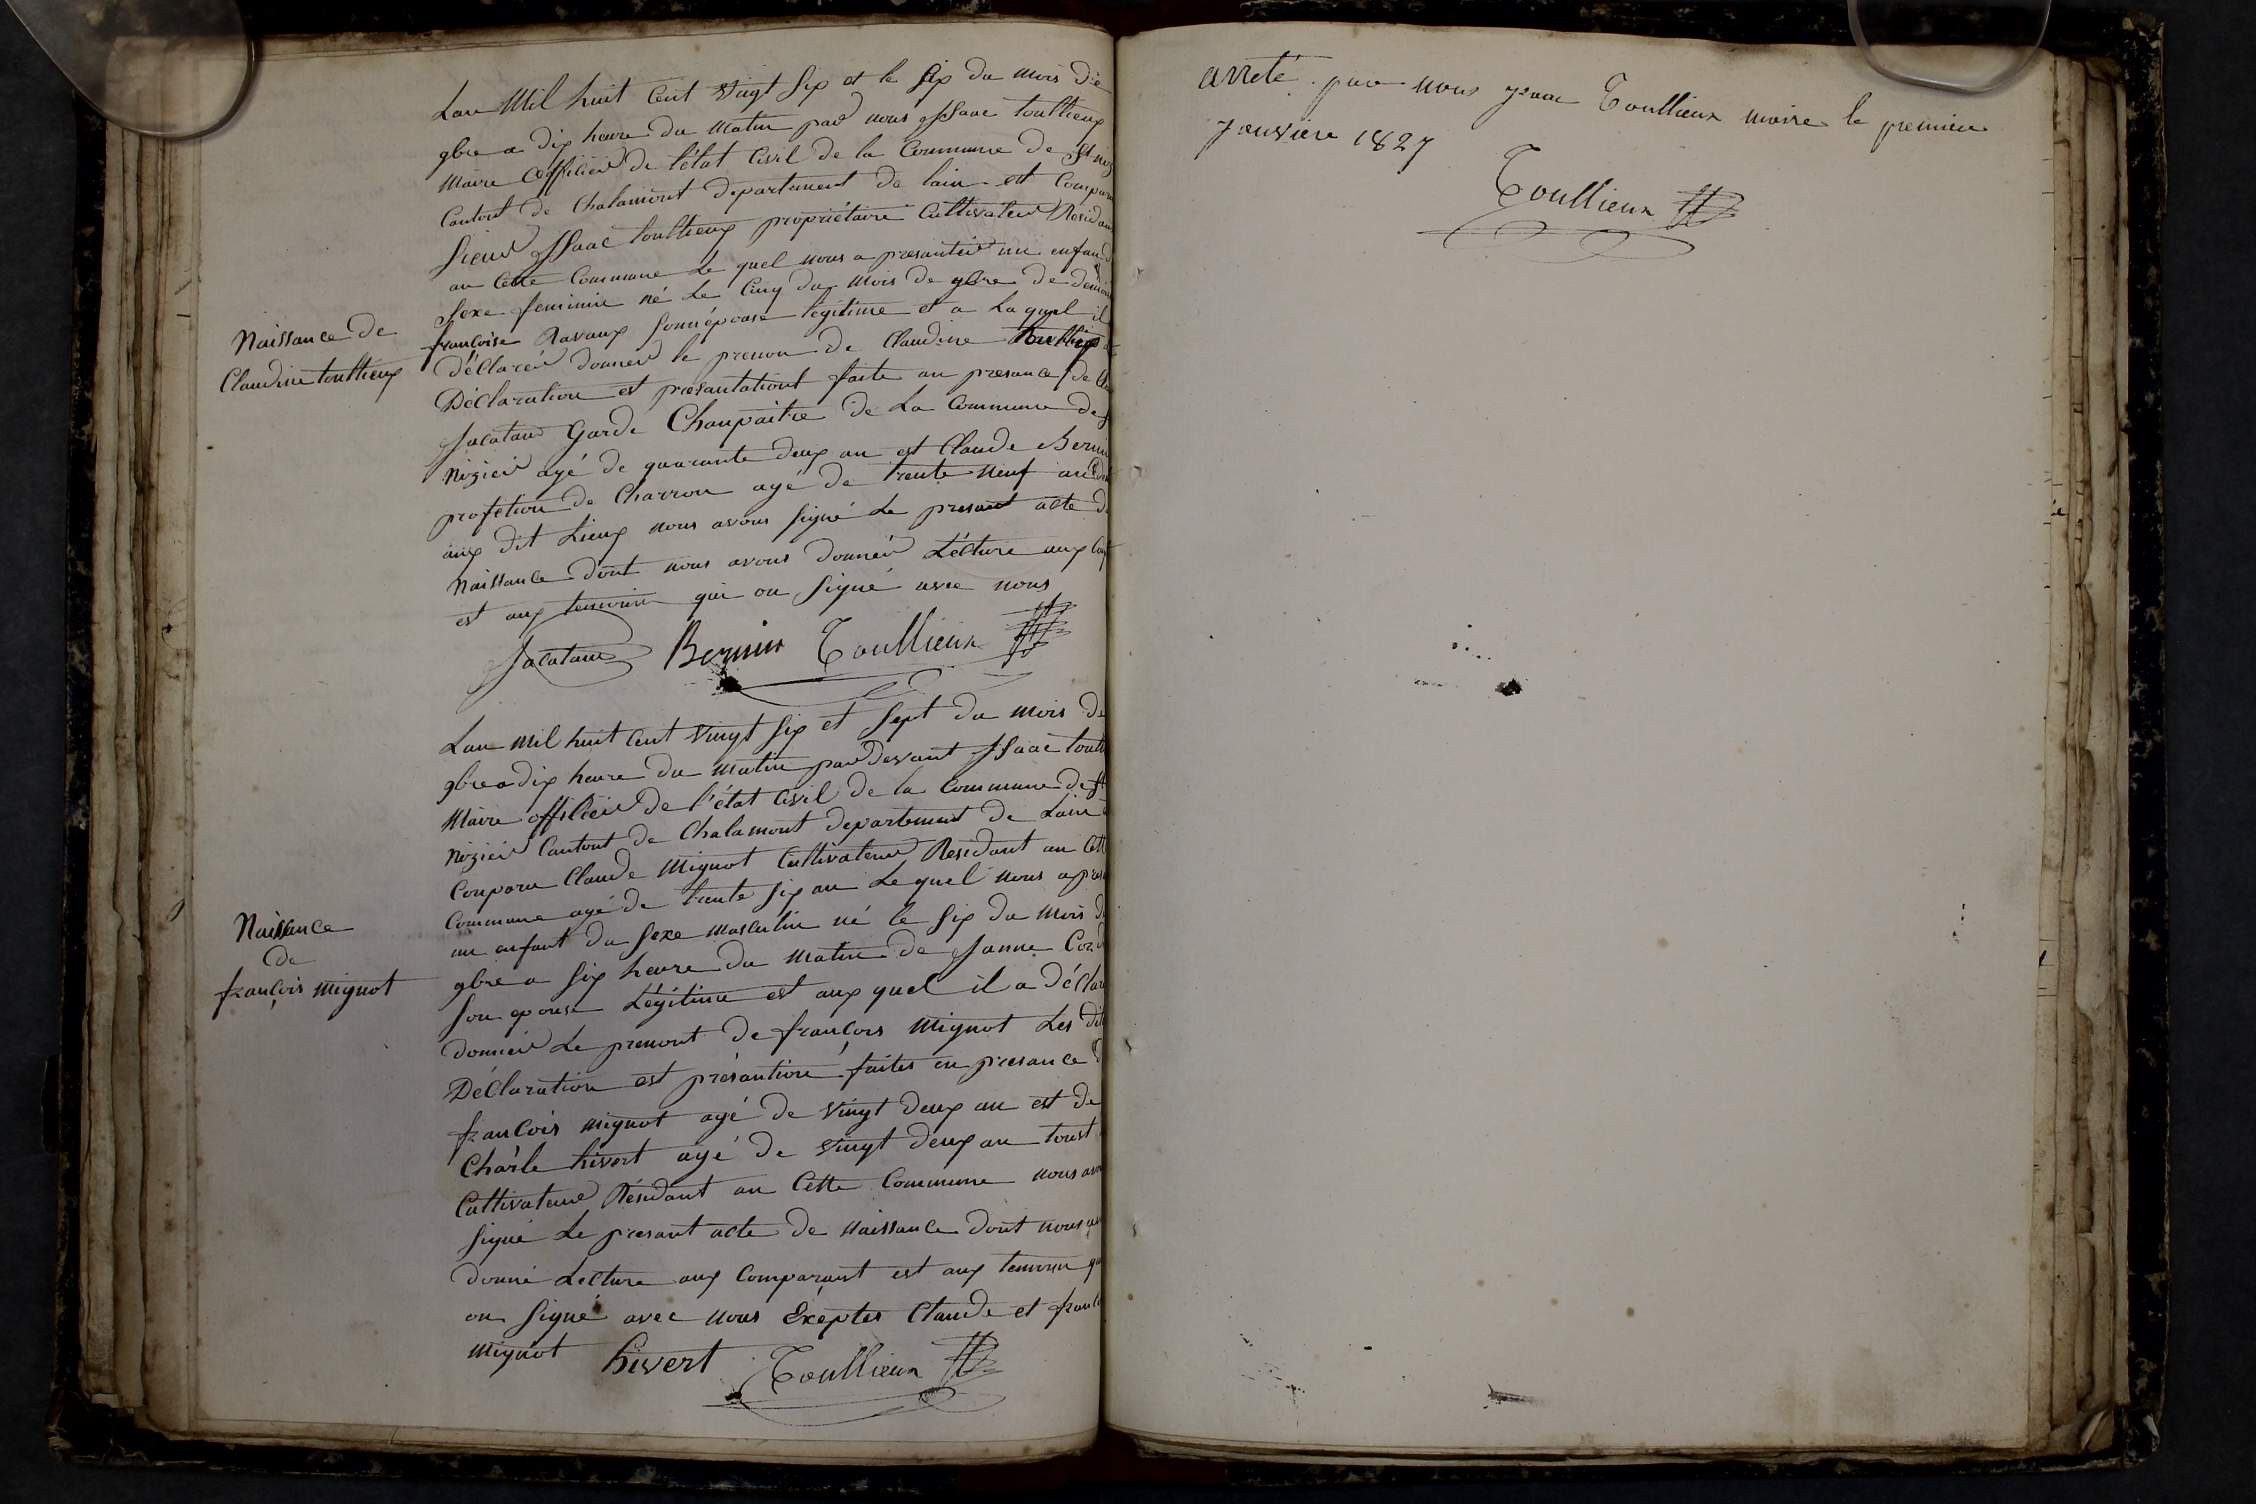 Lan Mil huit Cent Vingt Six et le Six du mois de
9bre a dix heure du Matin par nous Issaac toullieux
Maire Officier de l'état Civil de la Commune de St niz
Cantont de Chalamont departement de lain est Compar
Sieur Issaac toullieux propriétaire Cultivateur Residan
an Cette Commune Le quel nous a presantéer un enfan
Sexe feminin né Le Cinq du Mois de 9bre de
françoise Ravaux sonnépouse legitime et a Laquel il
Naissance de
Claudine toullieux
déllarér donner le prenon de Claudine
Déclaration et presantationt faite an presance de
Jacatau Garde Chanpaitre de La Commune de
Nizier agé de quarante deux an est Claude Bernin
profétion de Charron agé de trente Neuf an
aux dit Lieux nous avons Signé Le presant acte de
Naissance dont nous avons Donnér Lécture aux
est aux temoin qui on Signé avec nous
Jacatau Bernin Toullieux
Lan Mil huit Cent Vingt Six et Sept du Mois de
9bre a dix heure du Matin par Devant Issaac toull
Maire officier de l'état Civil de la Commune de St
Nizier Cantont de Chalamont departement de Lain
Conparu Claude Mignot Cultivateur Residant an Cett
Commune agé de trante Six an Le quel nous a pres
un enfant du Sexe Masculin né le Six du Mois de
Naissance
de
françois Mignot
9bre a Six heure du Matin de Janne
Son epouse Légitime est aux quel il a Déllar
donner Le prenont de françois Mignot Les dit
Déclaration est présantioné faites en presance
françois Mignot agé de Vingt deux an est de
Charle hivert agé de Vingt deux an toust
Cultivateur Résidant an Cette Commune nous avo
Signé Le presant acte de Naissance dont nous av
donné Lecture aux Comparant est aux temoin qu
on Signé avec nous Exéptes Claude et franc
Mignot hivert Toullieux
arreté par nous ysaac Toullieux maire le premier
janvière 1827
Toullieux